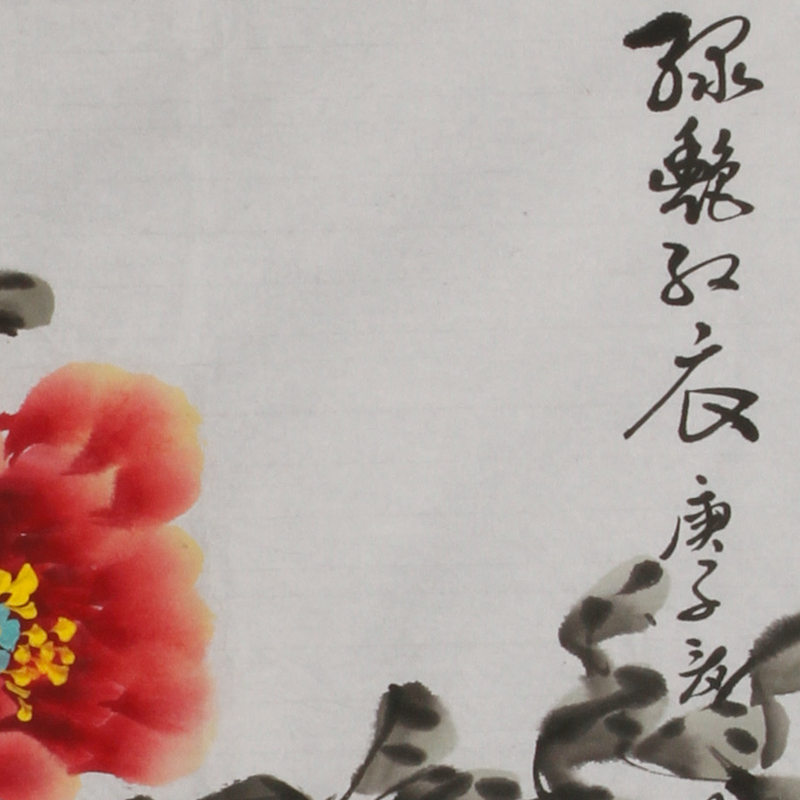 绿艳红衣
庚子夏